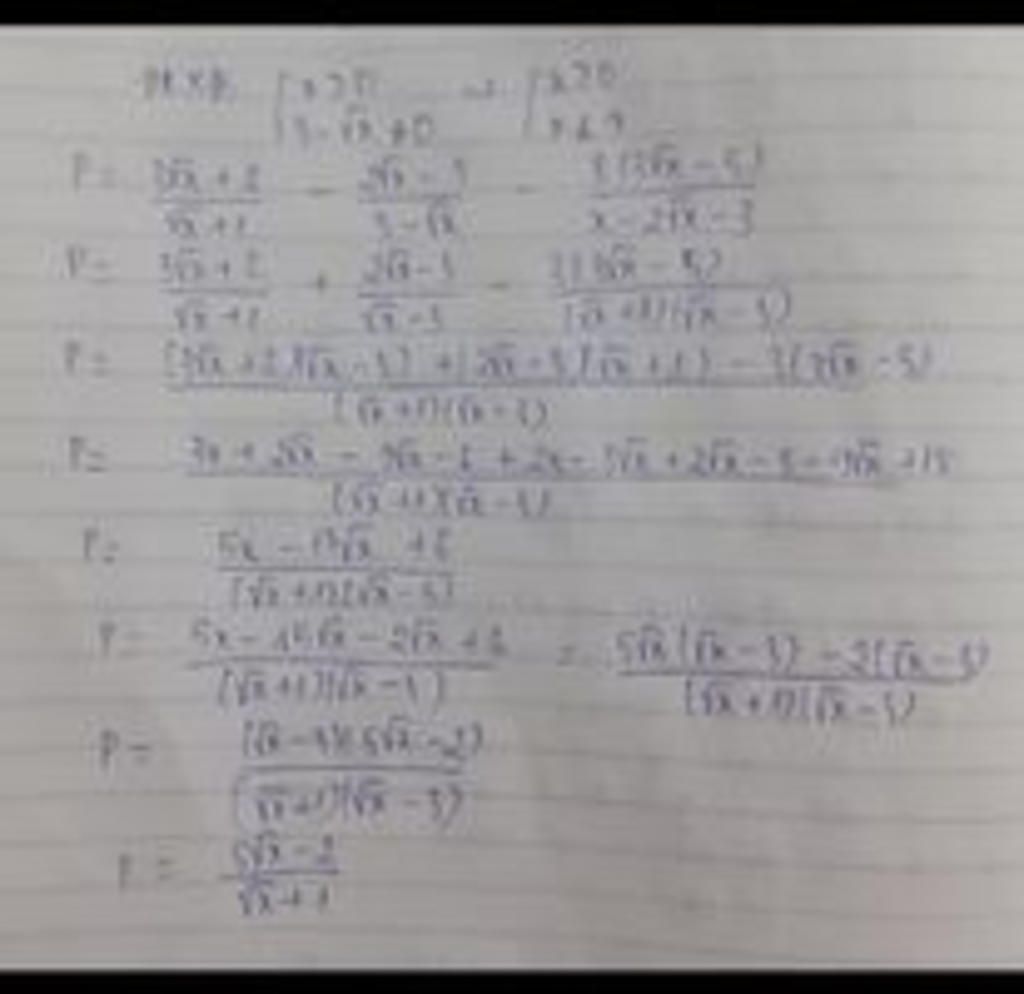 ĐKXĐ { x ≥ 0 3 - √x ≠ 0 => { x ≥ 0 x ≠ 9
P = (3√x + 2)/(√x + 1) - (2√x - 3)/(3 - √x) - 3(3√x - 5)/(x - 2√x - 3)
P = (3√x + 2)/(√x + 1) + (2√x - 3)/(√x - 3) - 3(3√x - 5)/((√x + 1)(√x - 3))
P = ((3√x + 2)(√x - 3) + (2√x - 3)(√x + 1) - 3(3√x - 5))/((√x + 1)(√x - 3))
P = (3x + 2√x - 9√x - 6 + 2x - 3√x + 2√x - 3 - 9√x + 15)/((√x + 1)(√x - 3))
P = (5x - 17√x + 6)/((√x + 1)(√x - 3))
P = (5x - 15√x - 2√x + 6)/((√x + 1)(√x - 3)) = (5√x(√x - 3) - 2(√x - 3))/((√x + 1)(√x - 3))
P = ((√x - 3)(5√x - 2))/((√x + 1)(√x - 3))
P = (5√x - 2)/(√x + 1)